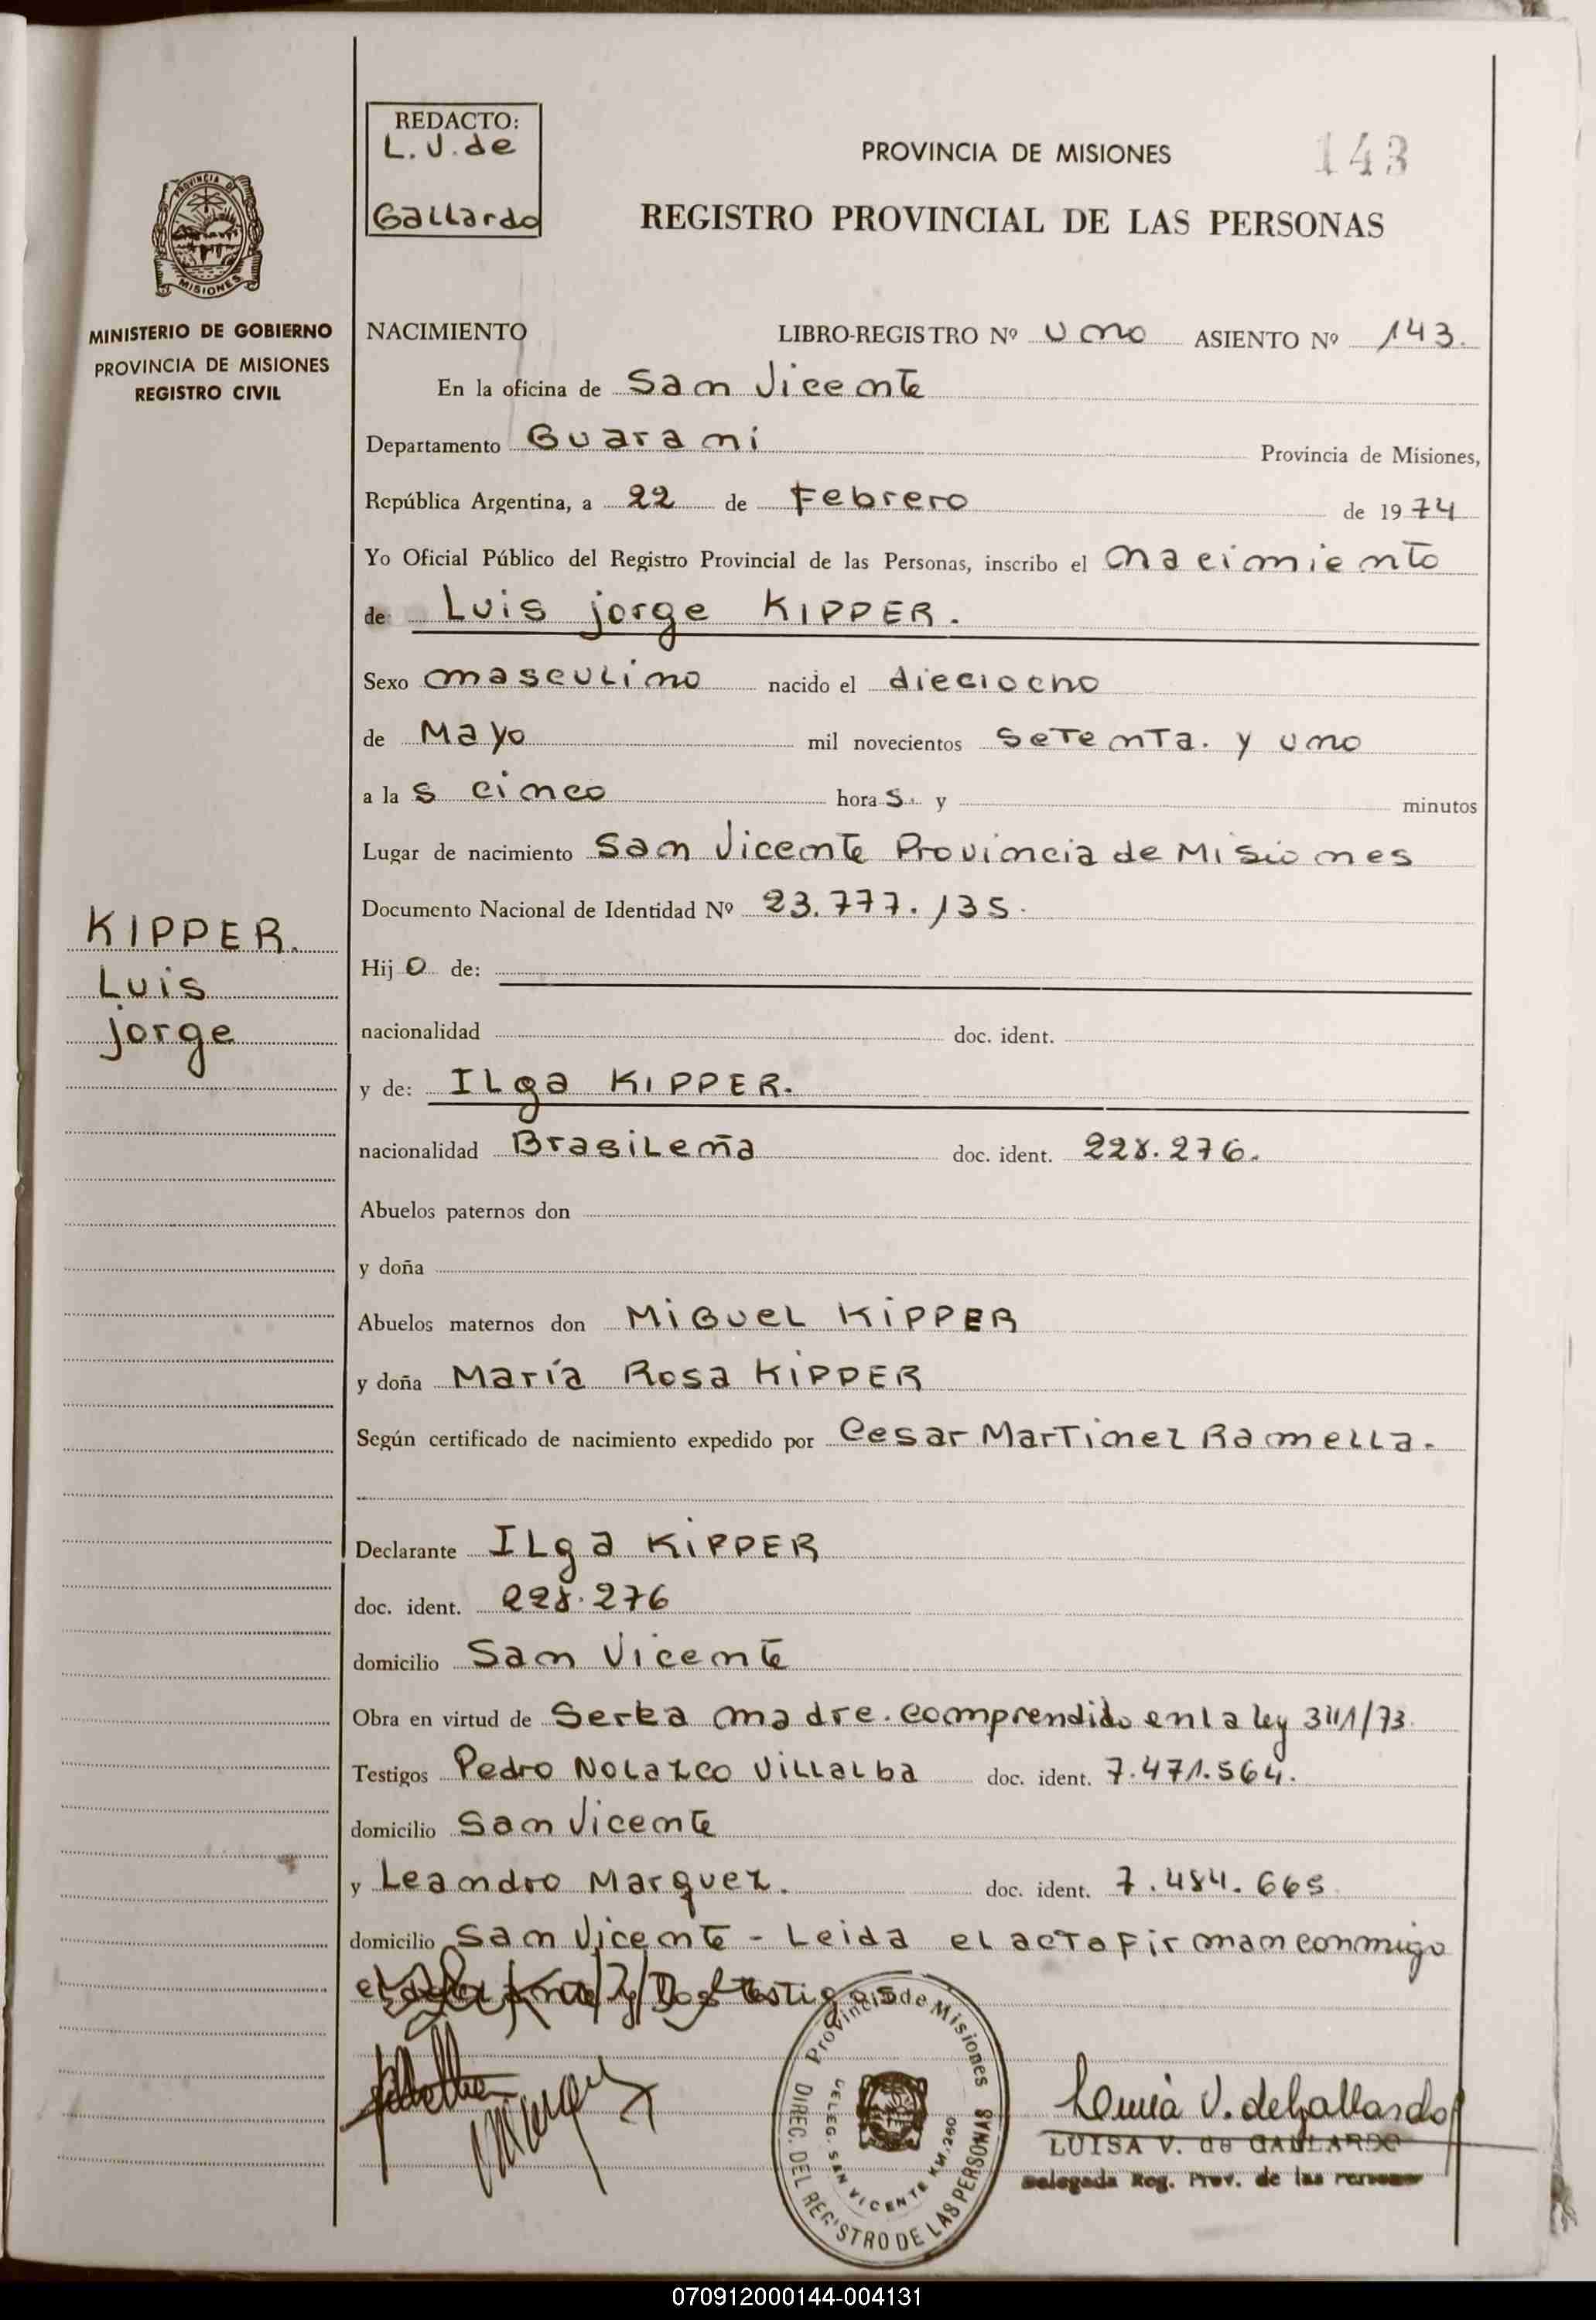 REDACTO:
L.V.de
Gallardo
PROVINCIA DE MISIONES
143
REGISTRO PROVINCIAL DE LAS PERSONAS
PROVINCIA DE
MISIONES
MINISTERIO DE GOBIERNO
PROVINCIA DE MISIONES
REGISTRO CIVIL
NACIMIENTO LIBRO-REGISTRO Nº Uno ASIENTO Nº 143.
En la oficina de San Vicente
Departamento Guarani Provincia de Misiones,
República Argentina, a 22 de Febrero de 1974
Yo Oficial Público del Registro Provincial de las Personas, inscribo el nacimiento
de Luis jorge KIPPER.
Sexo masculino nacido el dieciocho
de Mayo mil novecientos setenta. y uno
a las cinco horas. y minutos
Lugar de nacimiento San Vicente Provincia de Misiones
Documento Nacional de Identidad Nº 23.777.135.
KIPPER.
Luis
jorge
Hijo de:
nacionalidad doc. ident.
y de: ILga KIPPER.
nacionalidad Brasileña doc. ident. 228.276.
Abuelos paternos don
y doña
Abuelos maternos don Miguel KIPPER
y doña María Rosa KIPPER
Según certificado de nacimiento expedido por Cesar Martinez Ramella.
Declarante ILga KIPPER
doc. ident. 228.276
domicilio San Vicente
Obra en virtud de Serla madre. comprendido en la ley 311/73.
Testigos Pedro Nolazco Villalba doc. ident. 7.471.564.
domicilio San Vicente
y Leandro Marquez. doc. ident. 7.484.665
domicilio San Vicente - Leida el acta firman conmigo
testigos
Provincia de Misiones
DIREC. DEL REGISTRO DE LAS PERSONAS
DELEG. SAN VICENTE KM. 260
V. de Gallardo
LUISA V. de GALLARDO
Delegada Reg. Prov. de las Personas
070912000144-004131